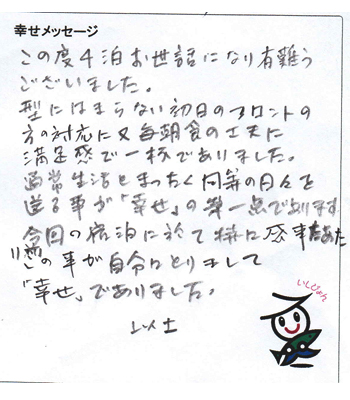 幸せメッセージ
この度4泊お世話になり有難う
ございました。
型にはまらない初日のフロントの
方の対応に又毎朝食の工夫に
満足感で一杯でありました。
通常生活とまったく同等の日々を
送る事が「幸せ」の第一点であります
今回の宿泊に於て特に感
の事が自分にとりまして
「幸せ」でありました。
以上
いしじょん